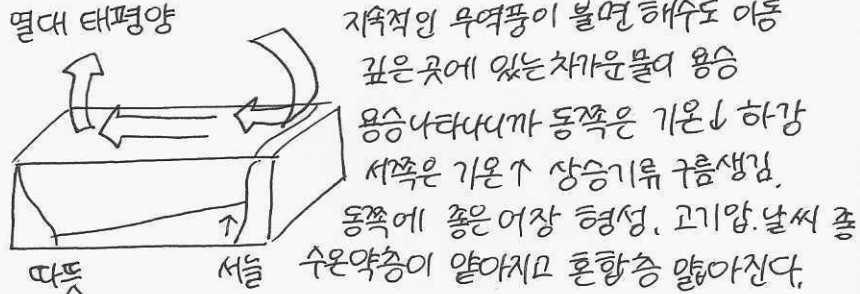 열대 태평양
지속적인 무역풍이 불면 해수도 이동
깊은 곳에 있는 차가운 물이 용승
용승나타나니까 동쪽은 기온↓ 하강
서쪽은 기온↑ 상승기류 구름생김.
동쪽에 좋은 어장 형성. 고기압. 날씨 좋
수온약층이 얕아지고 혼합층 얇아진다.
따뜻
서늘